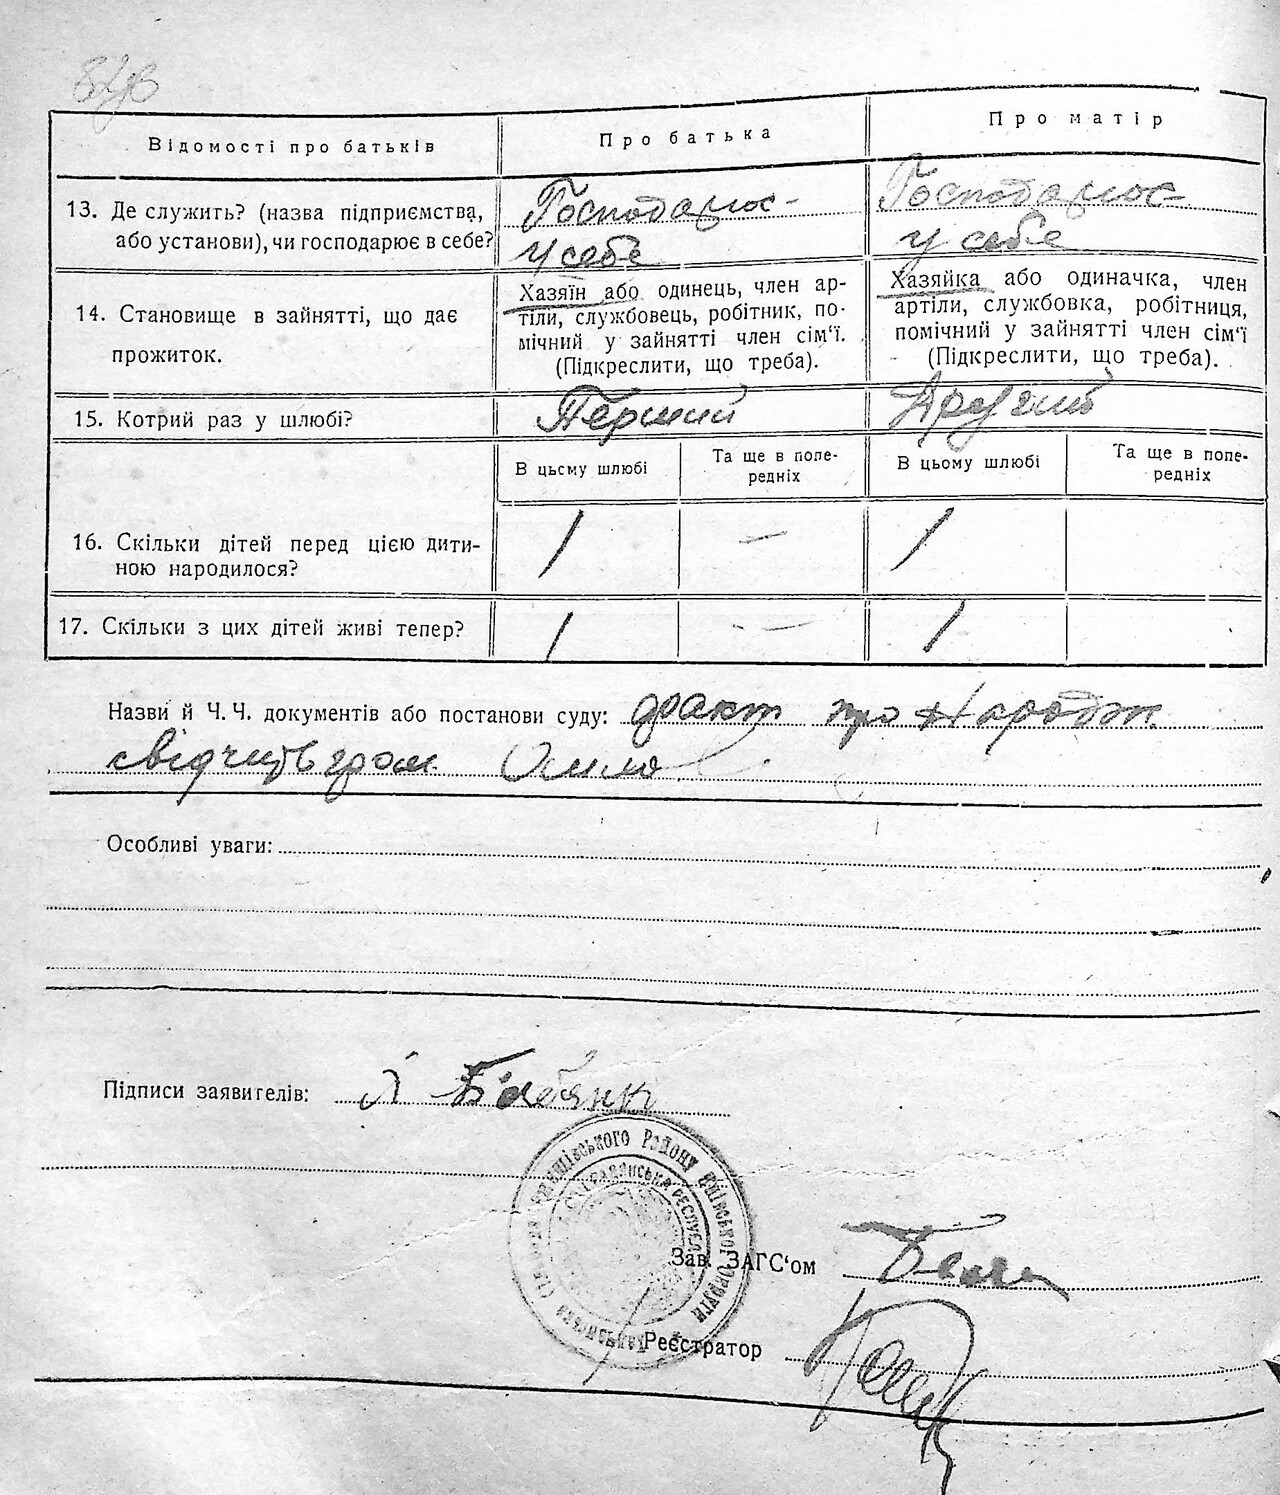 Відомості про батьків
Про батька
Про матір
13. Де служить? (назва підприємства,
або установи), чи господарює в себе?
Господарює
у себе
Господарює
у себе
14. Становище в зайнятті, що дає
прожиток.
Хазяїн або одинець, член ар-
тіли, службовець, робітник, по-
мічний у зайнятті член сім'ї.
(Підкреслити, що треба).
Хазяйка або одиначка, член
артіли, службовка, робітниця,
помічний у зайнятті член сім'ї
(Підкреслити, що треба).
15. Котрий раз у шлюбі?
Перший
Другий
В цьсму шлюбі
Та ще в попе-
редніх
В цьому шлюбі
Та ще в попе-
редніх
16. Скільки дітей перед цією дити-
ною народилося?
1
—
1
17. Скільки з цих дітей живі тепер?
1
—
1
Назви й Ч. Ч. документів або постанови суду: факт про народж
свідчить гром.
Особливі уваги:
Підписи заявителів:
Району Київського Округи
Зав. ЗАГС'ом
Реєстратор